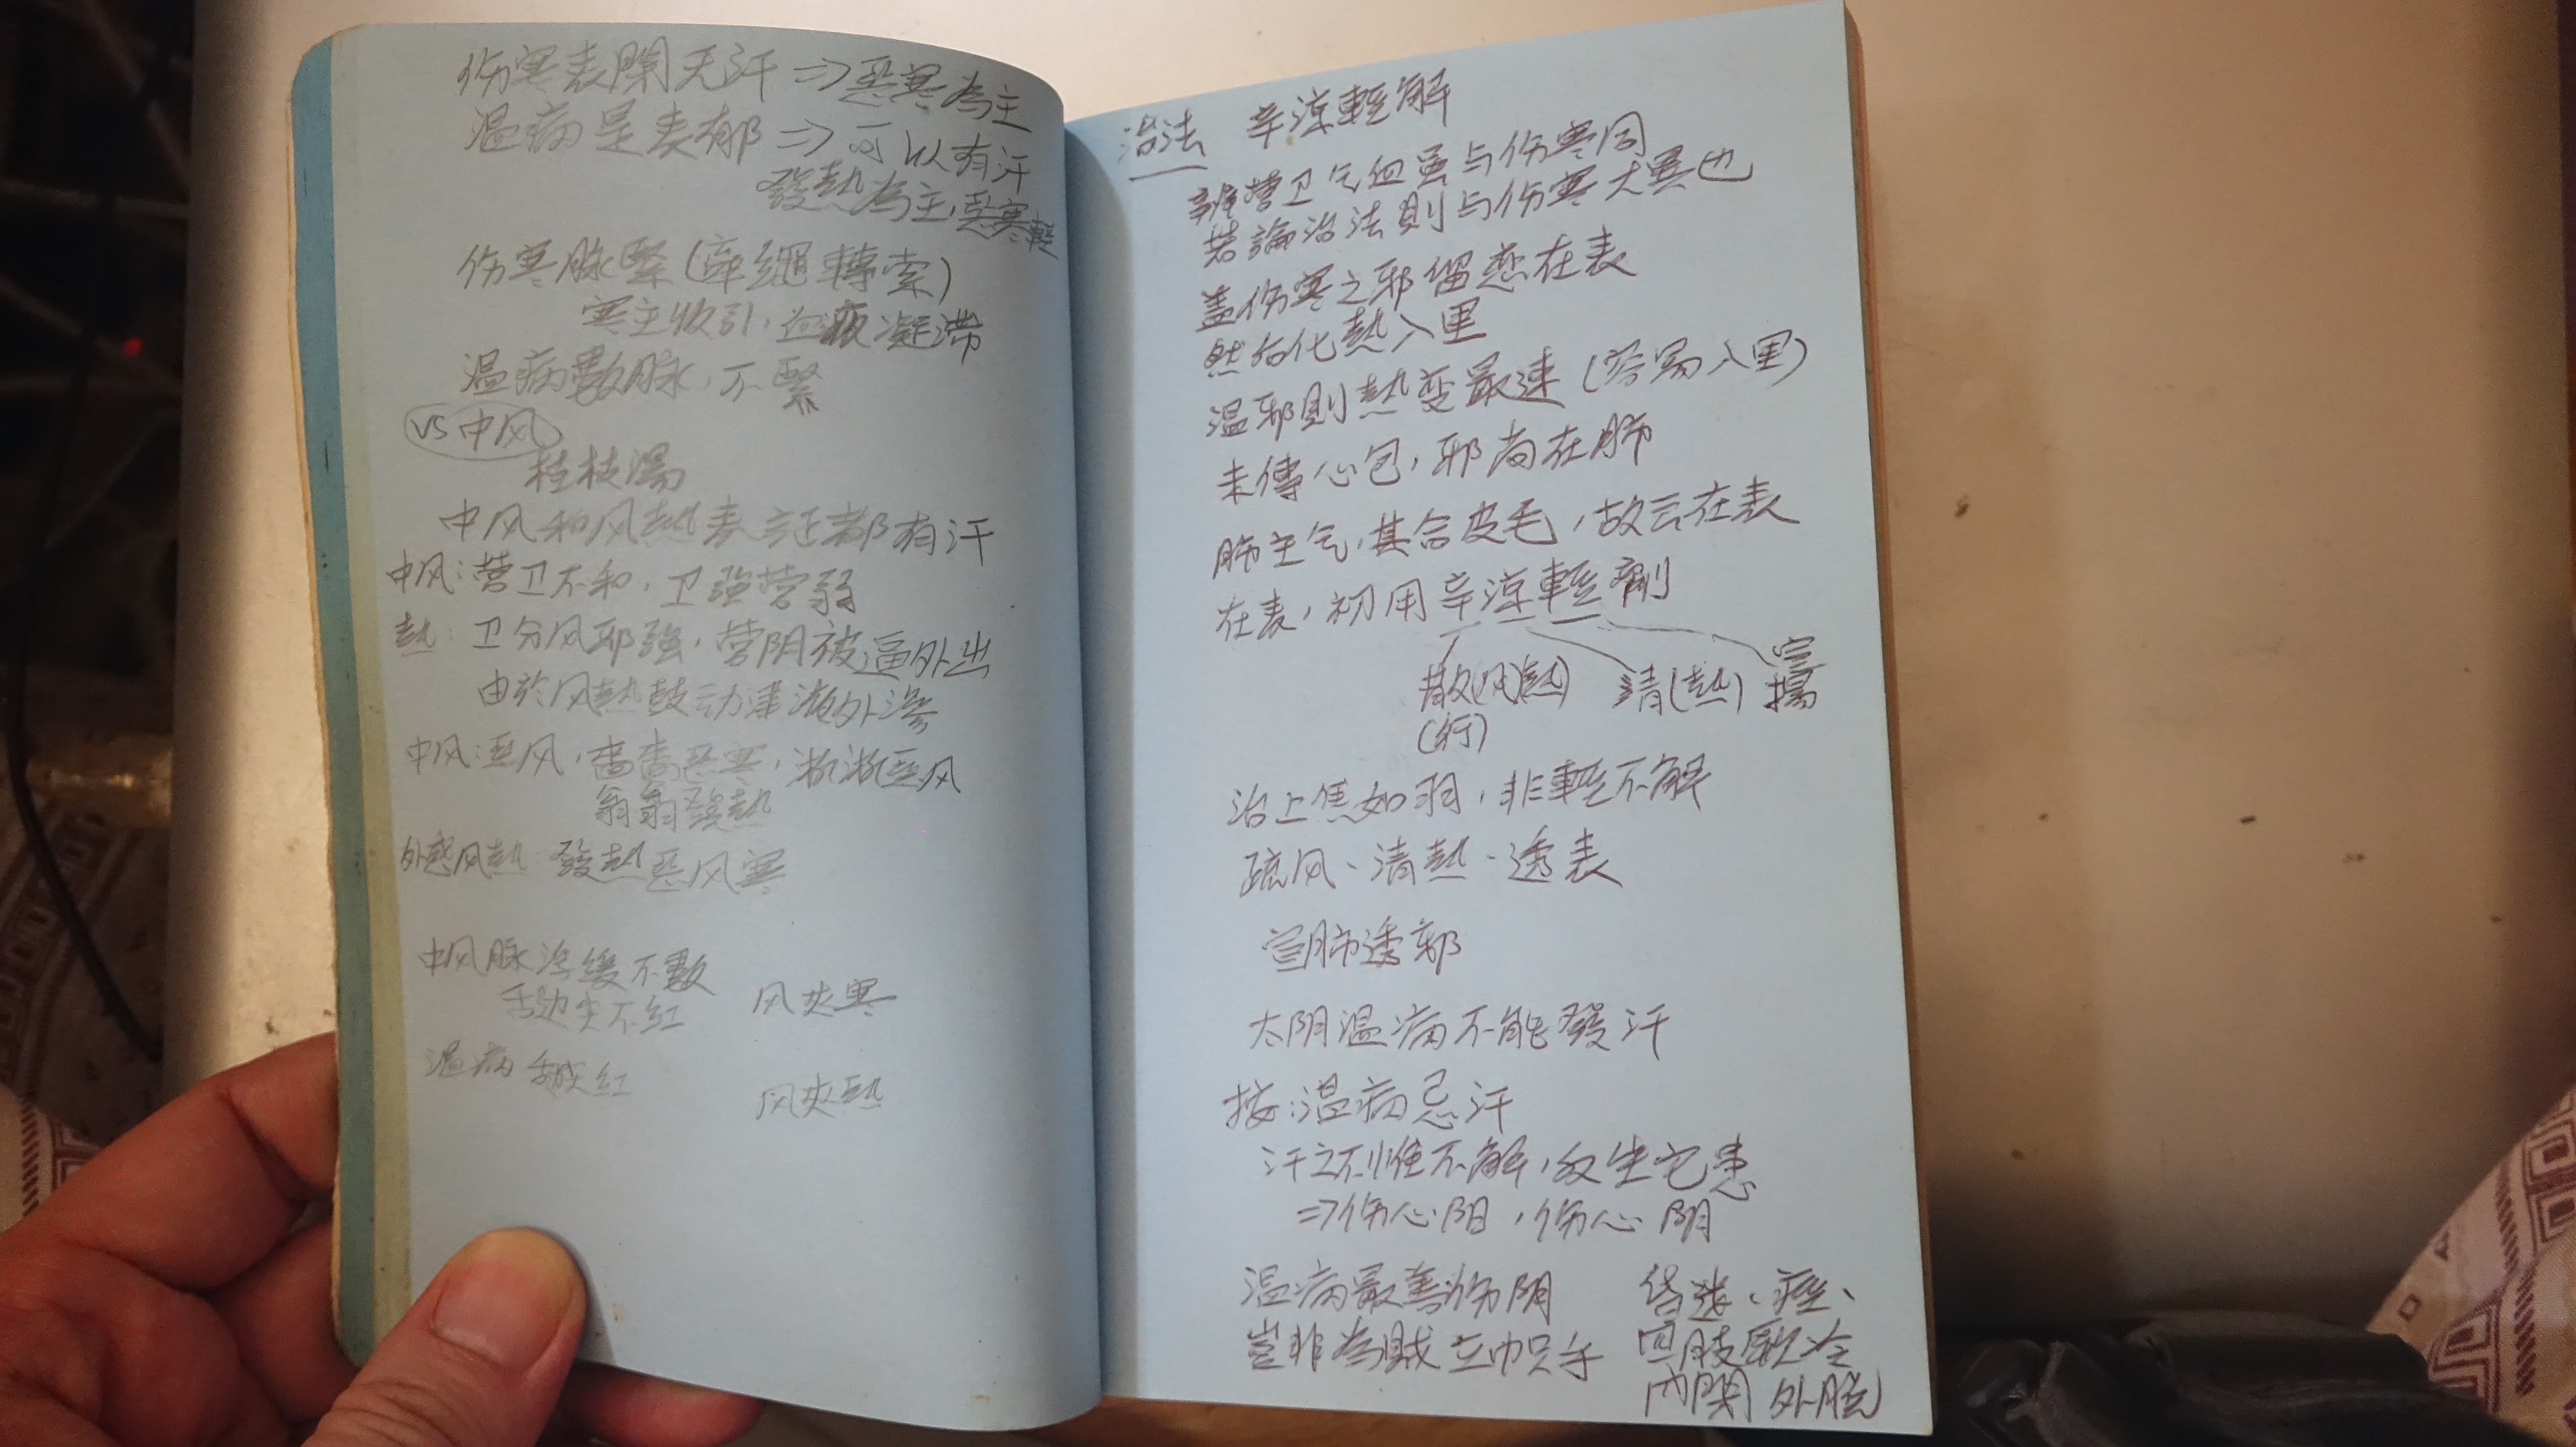 伤寒表閉无汗 => 恶寒為主
温病是表郁 => 可以有汗
發熱為主,恶寒輕
伤寒脉緊(牵绳轉索)
寒主收引,血液凝滞
温病數脉,不緊
VS中风
桂枝湯
中风和风熱表证都有汗
中风:营卫不和,卫強营弱
熱:卫分风邪強,营阴被逼外出
由於风熱鼓动津液外滲
中风:恶风,啬啬恶寒,淅淅恶风
翕翕發熱
外感风熱:發熱恶风寒
中风脉浮缓不數
舌边尖不红
风夾寒
温病
红
风夾熱
治法 辛涼輕解
辨营卫气血虽与伤寒同
若論治法則与伤寒大異也
盖伤寒之邪留恋在表
然后化熱入里
温邪則熱变最速(容易入里)
未傳心包,邪尚在肺
肺主气,其合皮毛,故云在表
在表,初用辛涼輕劑
散(风熱) 清(熱) 宣揚
(行)
治上焦如羽,非輕不解
疏风、清熱、透表
宣肺透邪
太阴温病不能發汗
按:温病忌汗
汗之不惟不解,反生它患
=>伤心阳,伤心阴
温病最善伤阴
豈非為賊立帜乎
昏迷、痉、
四肢厥冷
内閉外脱